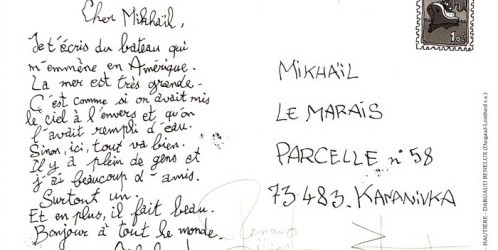 Cher Mikhaïl,
Je t'écris du bateau qui
m'emmène en Amérique.
La mer est très grande.
C'est comme si on avait mis
le ciel à l'envers et qu'on
l'avait rempli d'eau.
Sinon, ici, tout va bien.
Il y a plein de gens et
j'ai beaucoup d'amis.
Surtout un.
Et en plus, il fait beau.
Bonjour à tout le monde.
MIKHAÏL
LE MARAIS
PARCELLE n° 58
73483. KANANIVKA
DARGAUD BENELUX (Dargaud-Lombard s.a.)